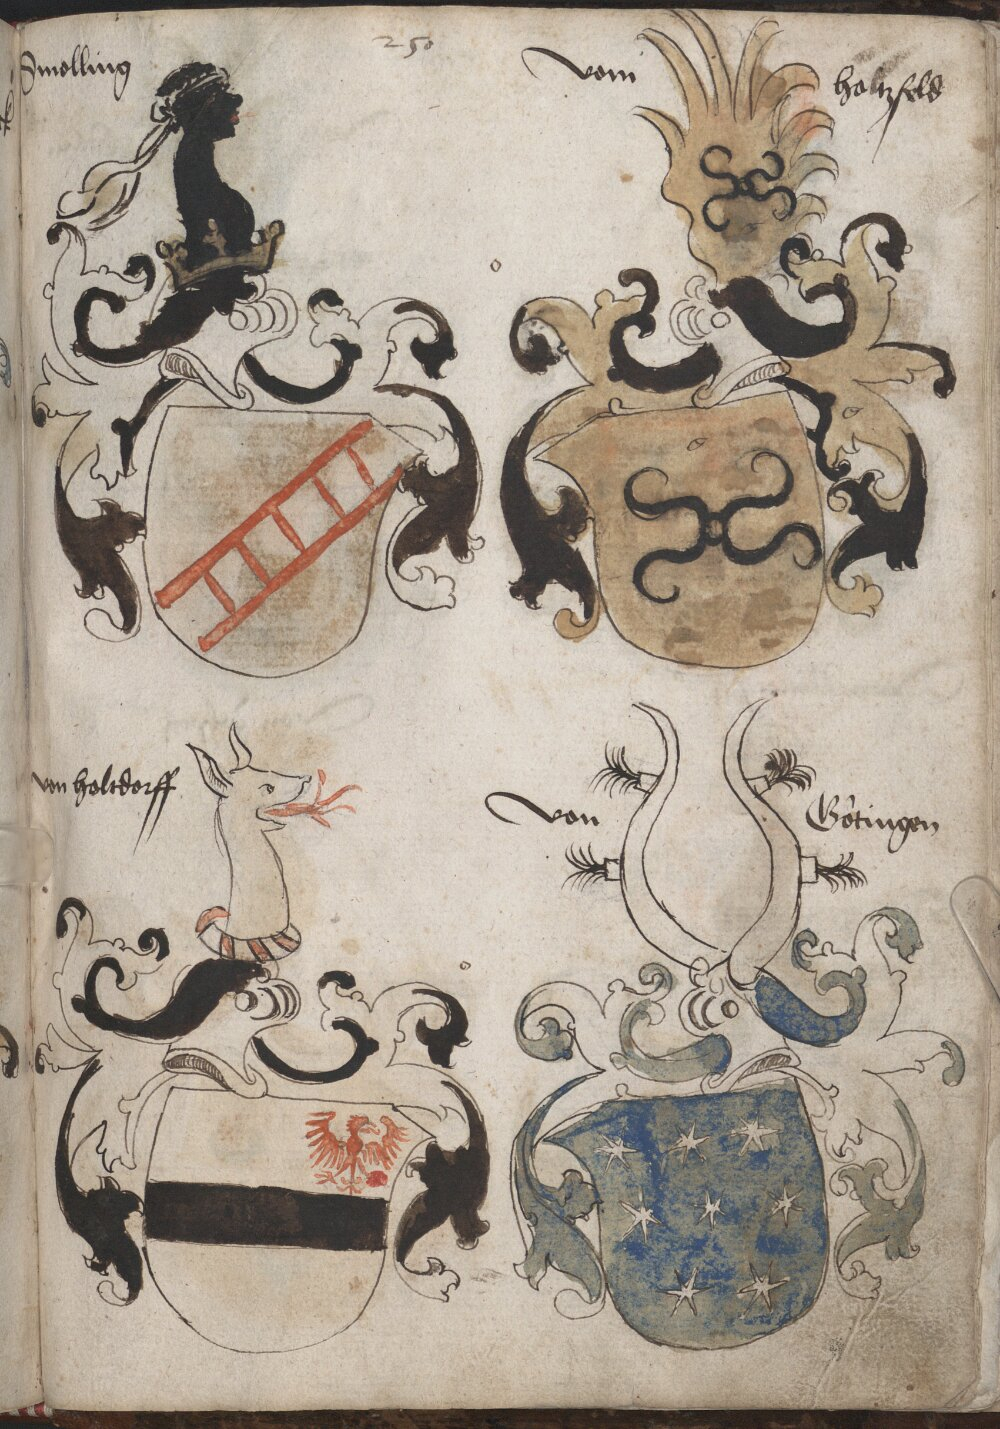 Smolling
250
vom holtzfeld
von holtdorff
von Götingen